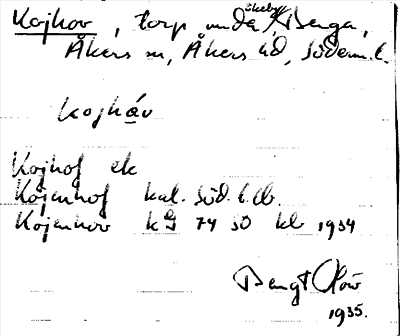 Kojhov, torp under Skeby, Berga,
Åkers sn, Åkers hd, Söderm. l.
kojháv
Kojhof ek
Kojenhof kal. Söd. l.
Kojenhov kg 74 SO kbl 1934
Bengt
1935.